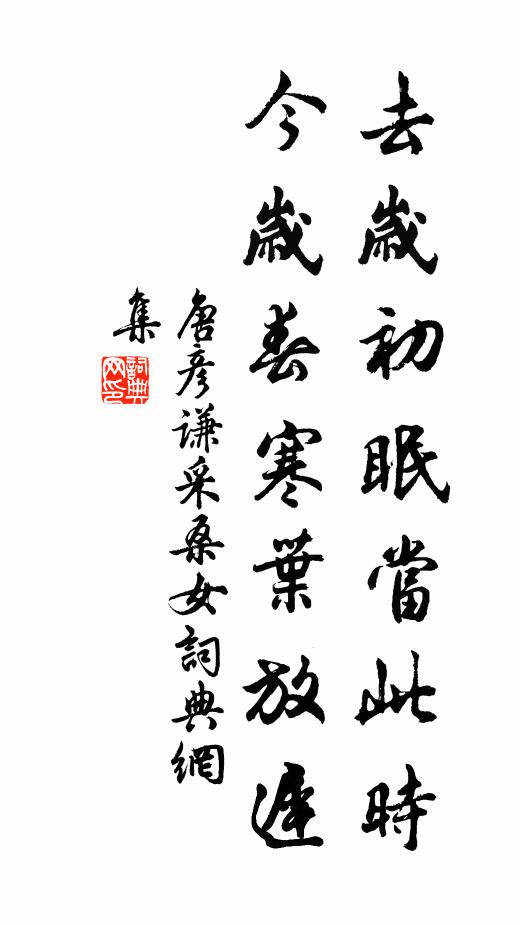 去歲初眠當此時
今歲春寒葉放遲
唐彥謙采桑女詞典網
集
詞典網印